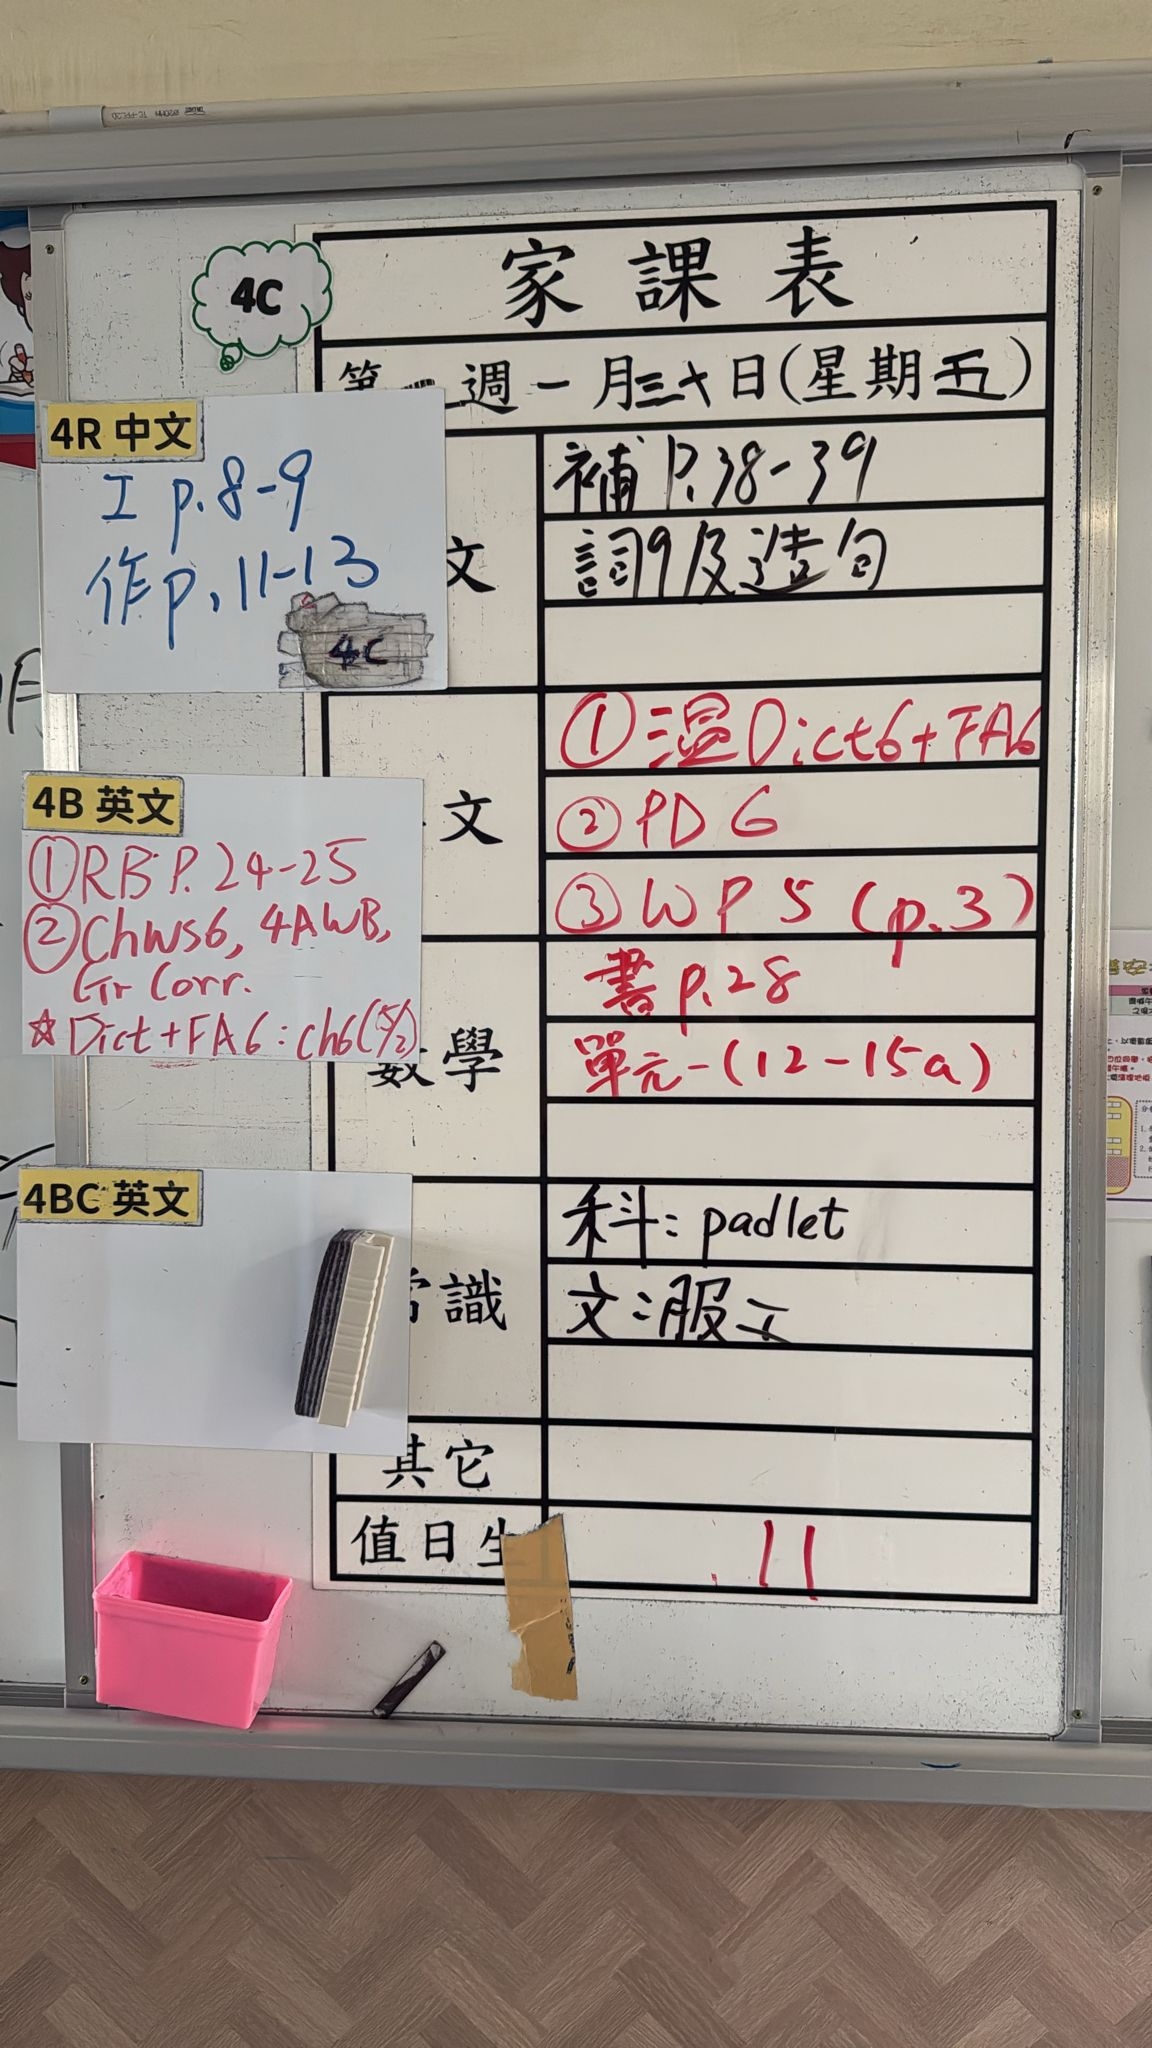 4C
家課表
週一月三十日(星期五)
4R 中文
工 p.8-9
作p.11-13
4C
文
補 P.38-39
詞9及造句
4B 英文
①RB P.24-25
②ChWS6, 4AWB,
Gr Corr.
☆Dict+FA6:ch6(5/2)
文
①溫Dict6+FA6
②PD 6
③WP 5 (p.3)
數學
書p.28
單元一(12-15a)
4BC 英文
常識
科: padlet
文:服工
其它
值日生
11